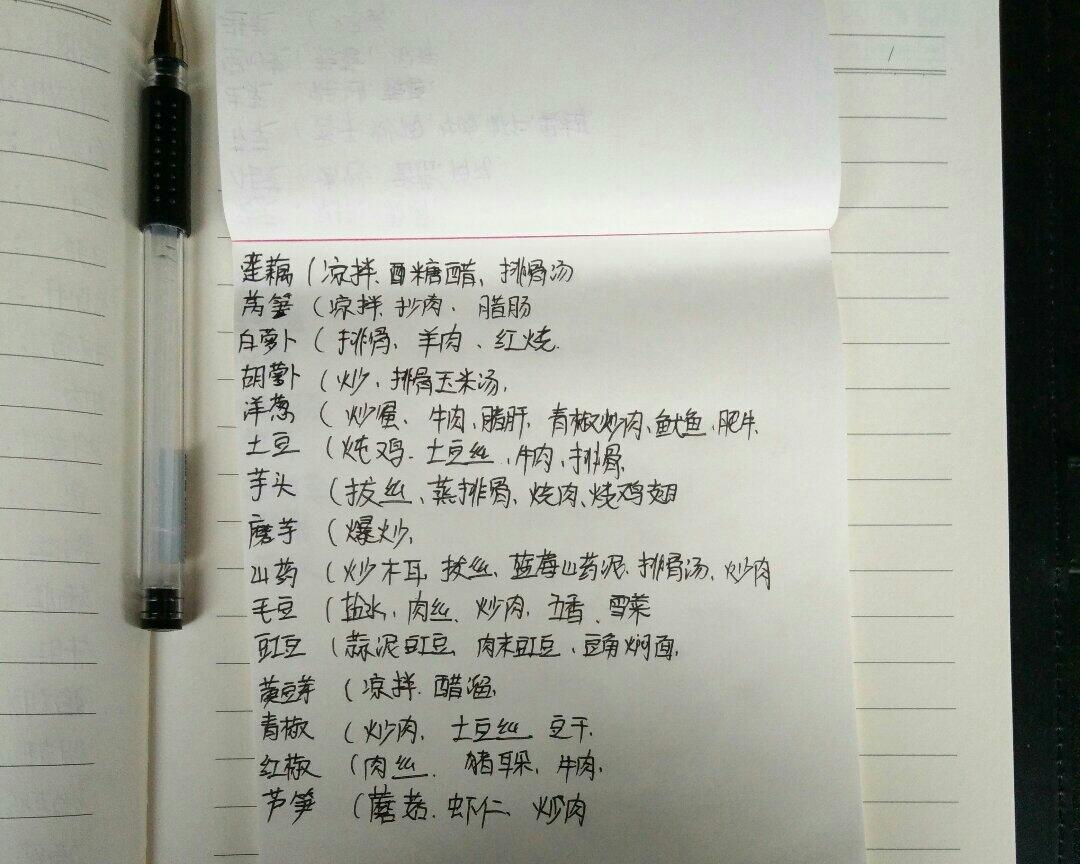 莲藕（凉拌、酉糖醋、排骨汤
莴笋（凉拌、抄肉、腊肠
白萝卜（排骨、羊肉、红烧
胡萝卜（炒、排骨玉米汤、
洋葱（炒蛋、牛肉、腊肝、青椒炒肉、鱿鱼、肥牛
土豆（炖鸡、土豆丝、牛肉、排骨、
芋头（拔丝、蒸排骨、烧肉、烧鸡翅
磨芋（爆炒、
山药（炒木耳、拔丝、蓝莓山药泥、排骨汤、炒肉
毛豆（盐水、肉丝、炒肉、五香、雪菜
豇豆（蒜泥豇豆、肉末豇豆、豆角焖面、
黄豆芽（凉拌、醋溜、
青椒（炒肉、土豆丝、豆干、
红椒（肉丝、猪耳朵、牛肉、
芦笋（蘑菇、虾仁、炒肉